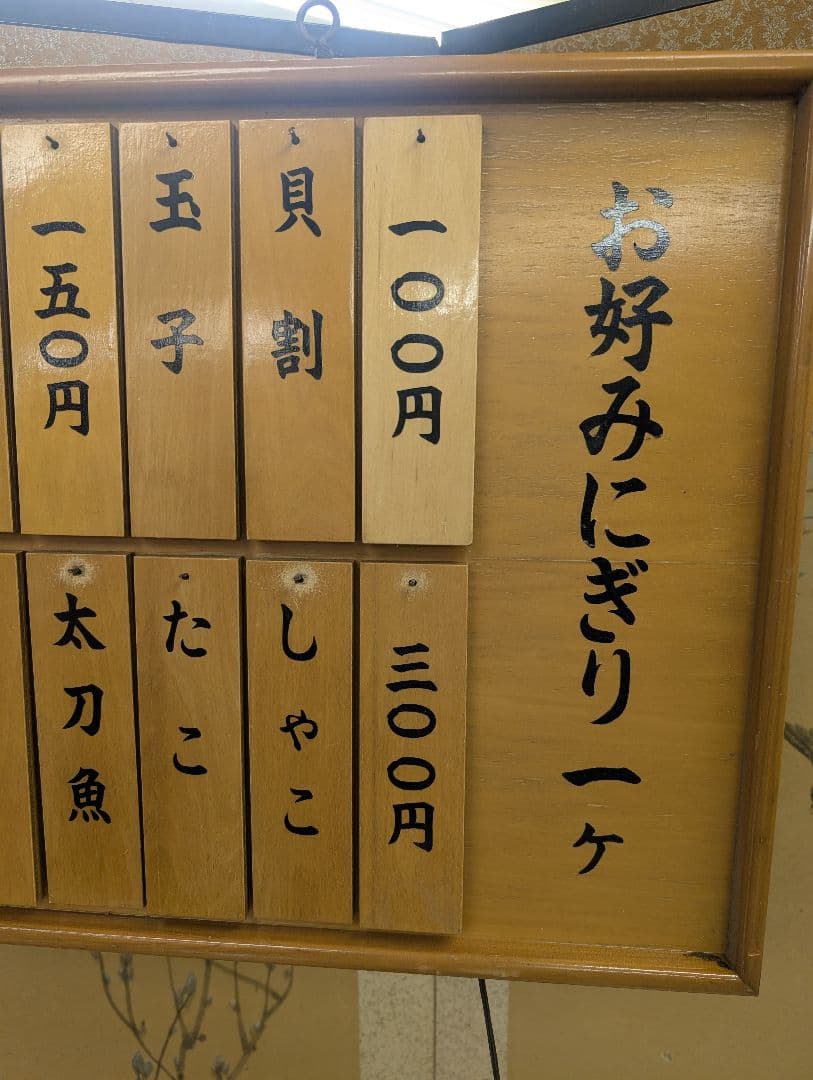 お好みにぎり 一ヶ
一〇〇円
貝割
玉子
一五〇円
三〇〇円
しゃこ
たこ
太刀魚